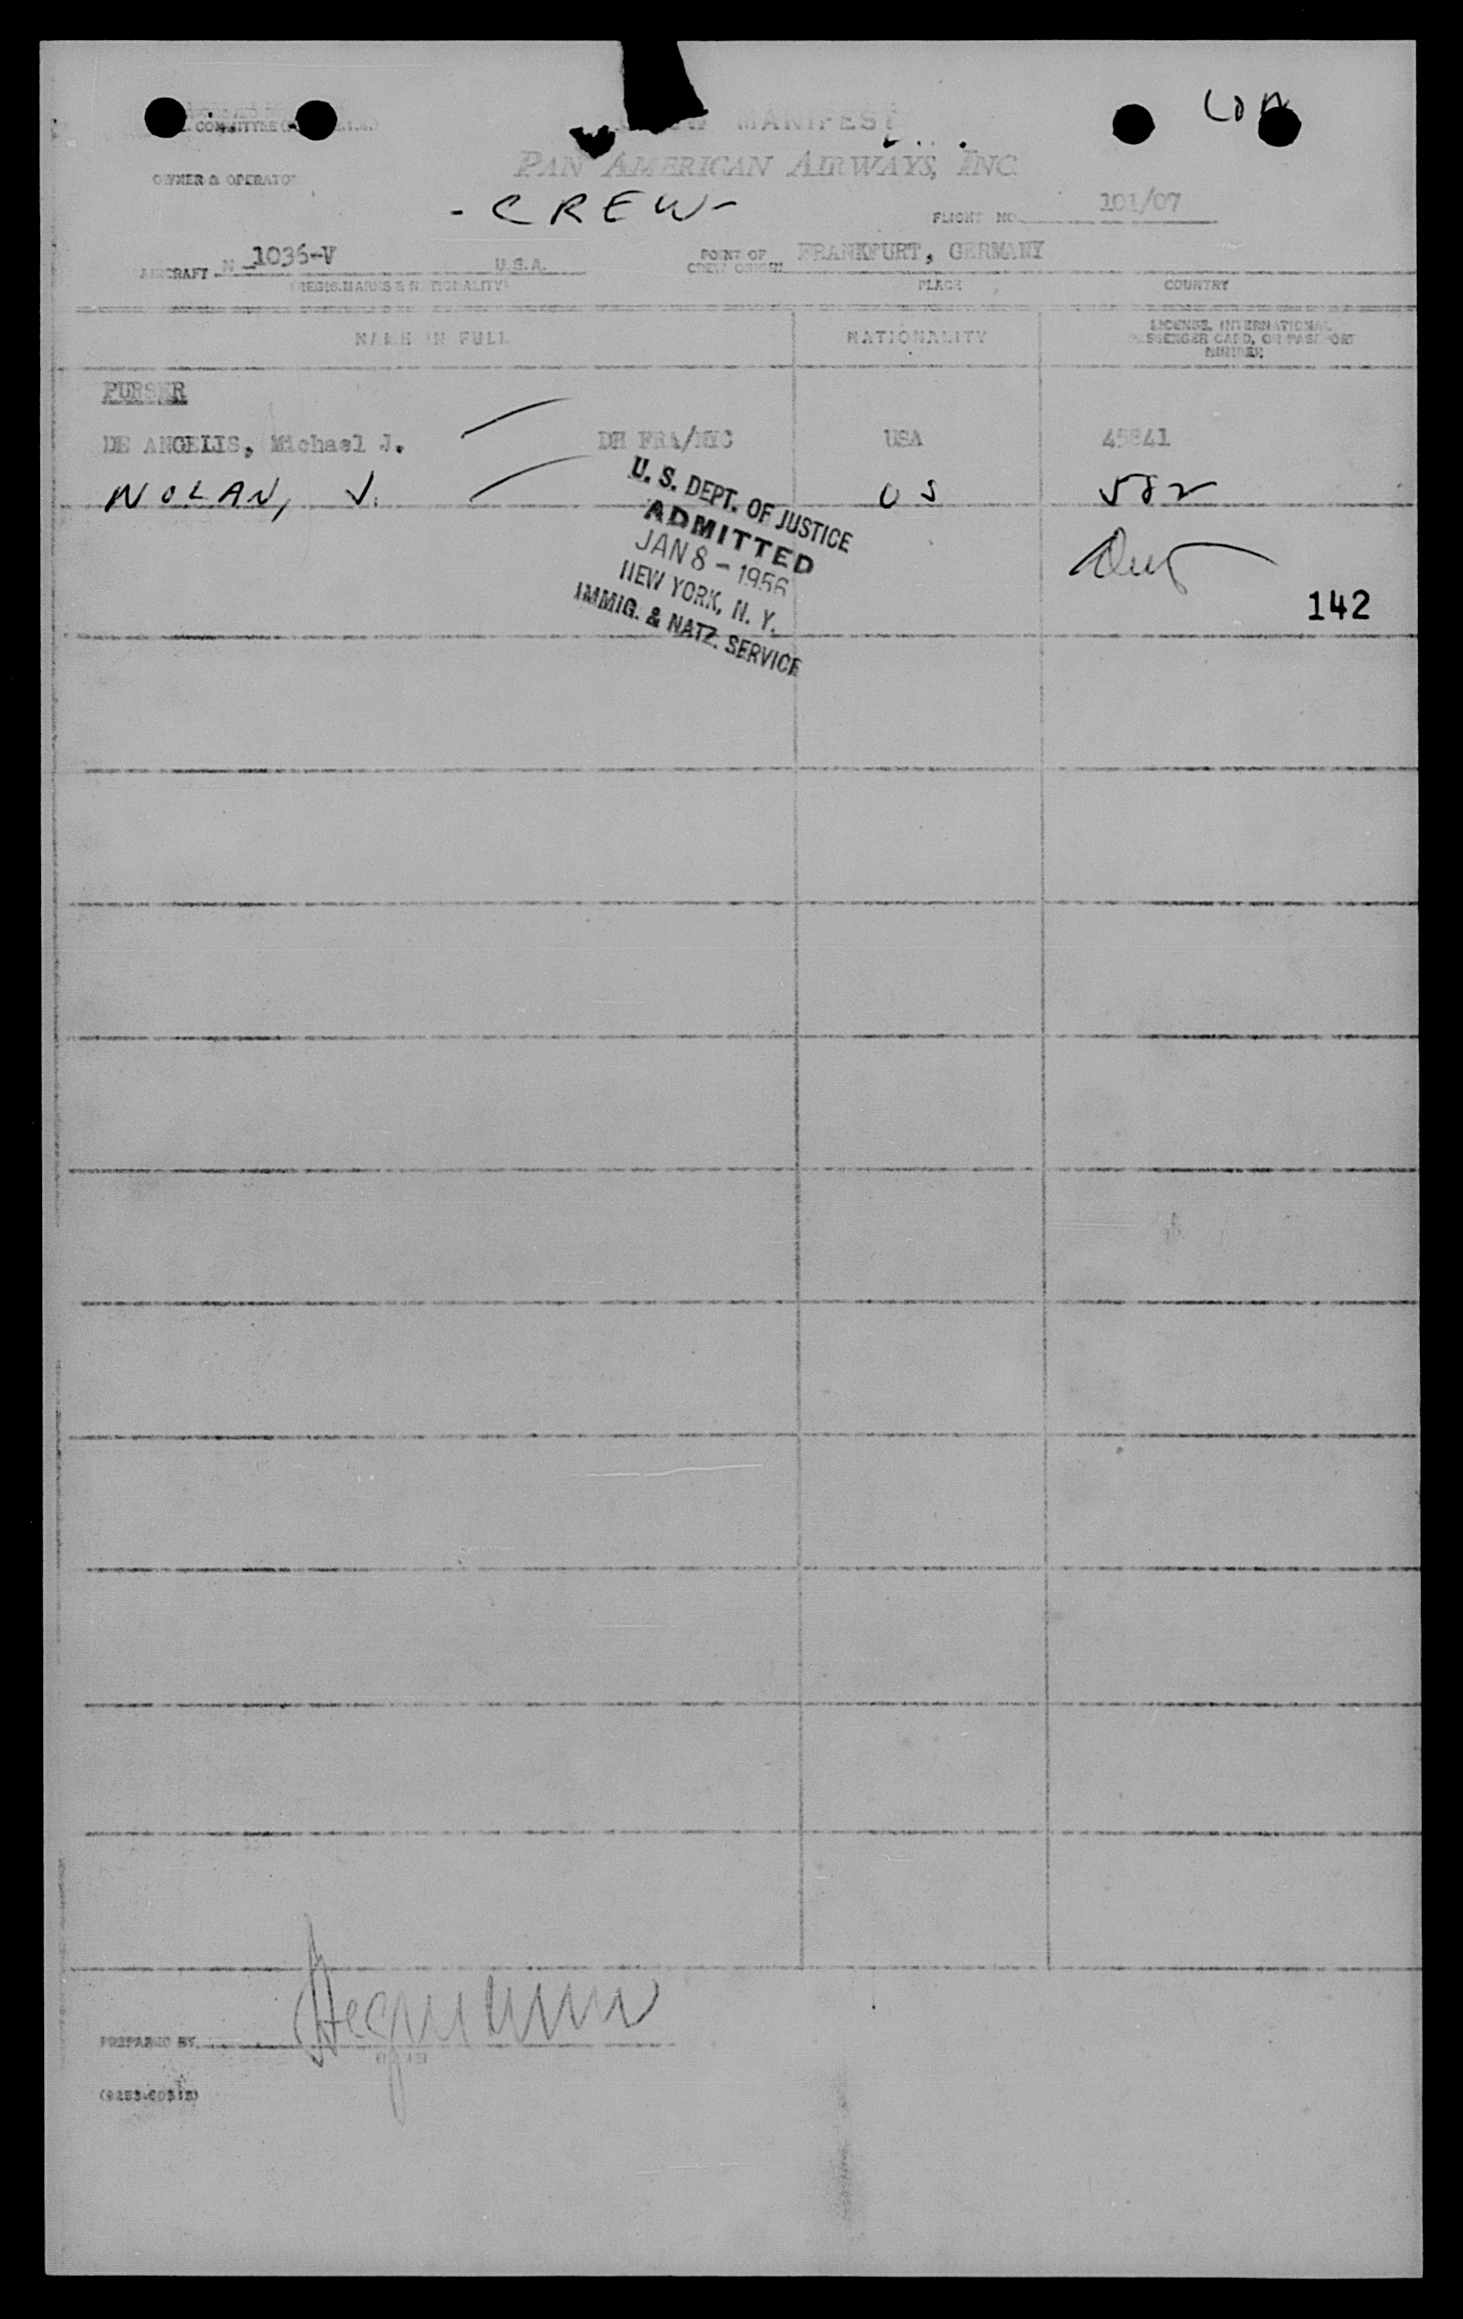 COMMITTEE
MANIFEST
PAN AMERICAN AIRWAYS, INC.
OWNER & OPERATOR
- CREW -
FLIGHT NO. 101/07
AIRCRAFT N 1036-V U.S.A.
POINT OF
CREW ORIGIN FRANKFURT, GERMANY
(REGIS. MARKS & NATIONALITY)
PLACE
COUNTRY
NAME IN FULL
NATIONALITY
LICENSE, INTERNATIONAL
PASSENGER CARD, OR PASSPORT
NUMBER
PURSER
DE ANGELIS, Michael J. DH FRA/NYC USA 45841
NOLAN, J. US 582
U. S. DEPT. OF JUSTICE
ADMITTED
JAN 8 - 1956
NEW YORK, N. Y.
IMMIG. & NATZ. SERVICE
142
PREPARED BY